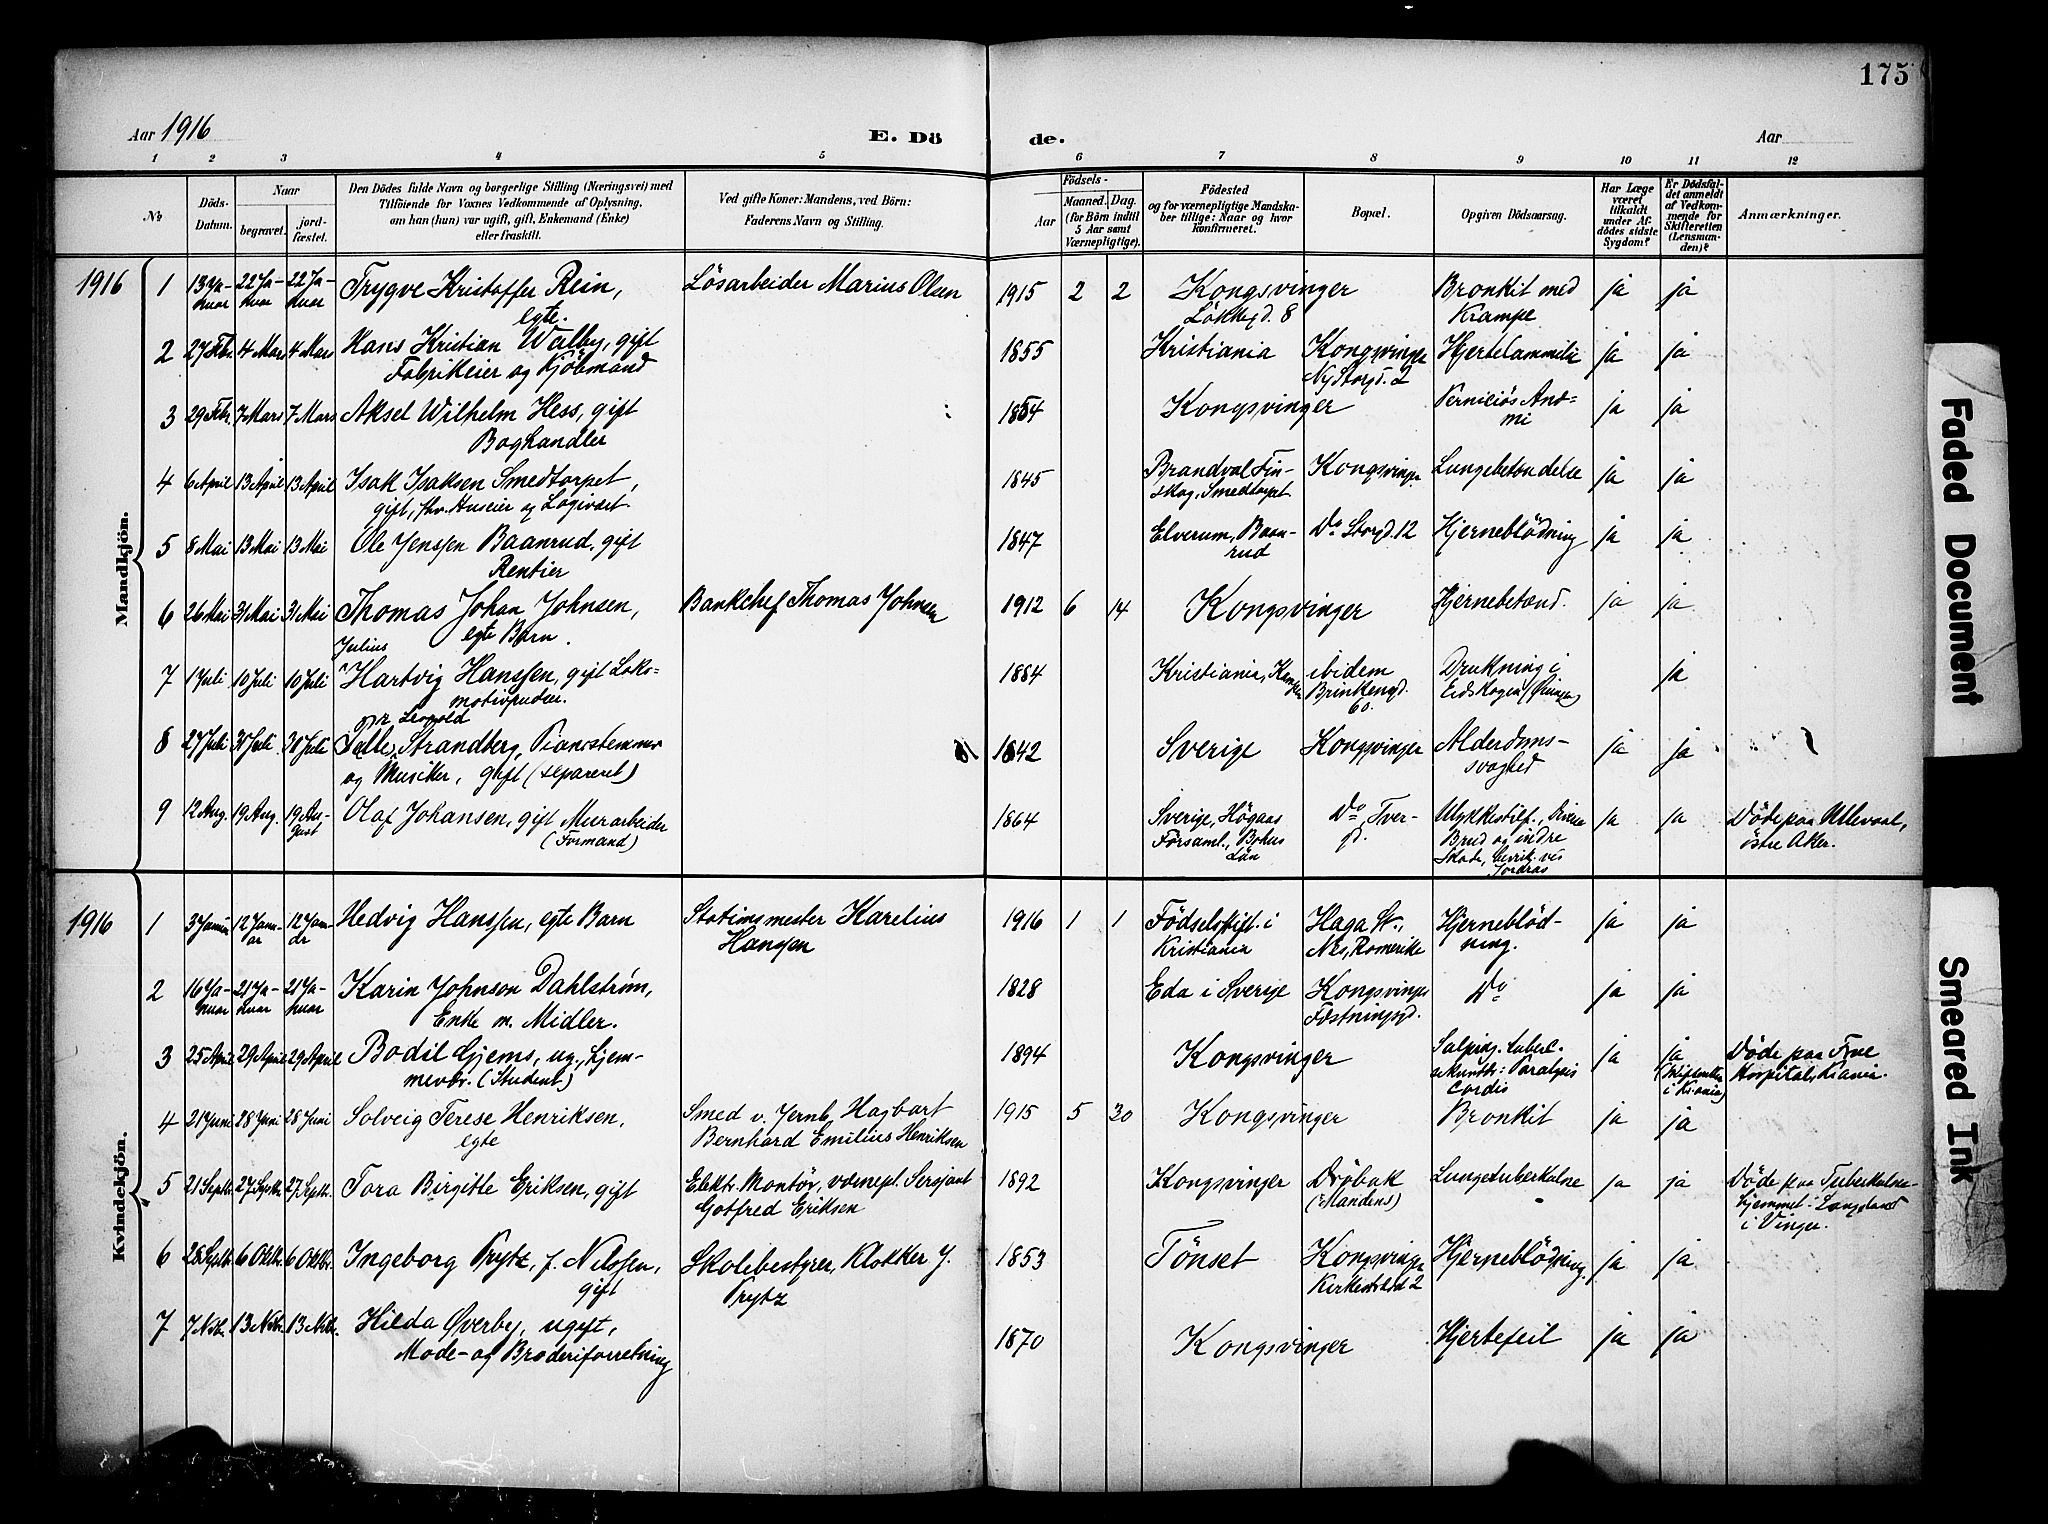 175
Aar 1916 E. Dö de. Aar
1 2 3 4 5 6 7 8 9 10 11 12
No
Döds-
Datum.
Naar
begravet.
jord-
fæstet.
Den Dödes fulde Navn og borgerlige Stilling (Næringsvei) med
Tilföiende for Voxnes Vedkommende af Oplysning,
om han (hun) var ugift, gift, Enkemand (Enke)
eller fraskilt.
Ved gifte Koner: Mandens, ved Börn:
Faderens Navn og Stilling.
Födsels-
Aar
Maaned. Dag.
(for Börn indtil
5 Aar samt
Værnepligtige).
Födested
og for værnepligtige Mandska-
ber tillige: Naar og hvor
konfirmeret.
Bopæl.
Opgiven Dödsaarsag.
Har Læge
været
tilkaldt
under Af-
dödes sidste
Sygdom?
Er Dödsfal-
det anmeldt
af Vedkom-
mende for
Skifteretten
(Lensman-
den)?
Anmærkninger.
Mandkjön.
1916 1 13 Ja-
nuar 22 Ja-
nuar 22 Ja-
nuar Trygve Kristoffer Rein,
egte. Lösarbeider Marius Olsen 1915 2 2 Kongsvinger
Lökkegd. 8 Bronkit med
Krampe ja ja
2 27 Febr. 4 Mars 4 Mars Hans Kristian Walby, gift
Fabrikeier og Kjöbmand 1855 Kristiania Kongsvinger
Ny Storgd. 2 Hjertelammelse ja ja
3 29 Febr. 7 Mars 7 Mars Aksel Wilhelm Hess, gift
Boghandler 1854 Kongsvinger Perniciös Anæ-
mi ja ja
4 6 April 13 April 13 April Isak Isaksen Smedtorpet,
gift, fhv. Huseier og Logivært. 1845 Brandval Fin-
skog, Smedtorpet Kongsvinger Lungebetændelse ja ja
5 8 Mai 13 Mai 13 Mai Ole Jenssen Baanrud, gift
Rentier 1847 Elverum, Baan-
rud Do Storgd. 12 Hjerneblödning ja ja
6 26 Mai 31 Mai 31 Mai Thomas Johan Johnsen,
egte Barn. Bankchef Thomas Johnsen 1912 6 14 Kongsvinger Hjernebetænd. ja ja
Julius
7 1 Juli 10 Juli 10 Juli Hartvig Hanssen, gift Loko-
motivpudser. 1884 Kristiania, ibidem
Brinkengd.
60. Drukning i
Eidskogen ja
Leopold
8 27 Juli 30 Juli 30 Juli Strandberg, Pianostemmer
og Musiker, gift (separeret) 1842 Sverige Kongsvinger Alderdoms-
svaghed ja ja
9 12 Aug. 19 Aug. 19 Au-
gust Olaf Johansen, gift Murarbeider
(Formand) 1864 Sverige, Högaas
Församl., Bohus
Län Do, Tver-
gd. Ulykkestilf., Diverse
Brud og indre
Skade, ved
Jordras ja ja Döde paa Ullevaal,
östre Aker.
Kvindekjön.
1916 1 3 Januar 12 Janu-
ar 12 Janu-
ar Hedvig Hanssen, egte Barn Stationsmester Karelius
Hanssen 1916 1 1 Födselsstift. i
Kristiania Haga St.,
Nes, Romerike Hjerneblöd-
ning. ja ja
2 16 Ja-
nuar 21 Ja-
nuar 21 Ja-
nuar Karin Johnson Dahlström,
Enke m. Midler. 1828 Eda i Sverige Kongsvinger
Fæstningsgd. Do ja ja
3 25 April 29 April 29 April Bodil Gjems, ug., hjem-
meværr. (Student) 1894 Kongsvinger Salping. tubercl.
Paralysis
cordis ja ja
(Skifteretten
i Kr.ania) Döde paa
Hospital, Kr.ania.
4 21 Juni 28 Juni 28 Juni Solveig Terese Henriksen,
egte Smed v. Jernb. Hagbart
Bernhard Emilius Henriksen 1915 5 30 Kongsvinger Bronkit ja ja
5 21 Septbr. 27 Septbr. 27 Septbr. Tora Birgitte Eriksen, gift Elektr. Montör, værnepl. Sersjant
Gotfred Eriksen 1892 Kongsvinger Dröbak
(Mandens) Lungetuberkulose ja ja Döde paa Tuberkulose-
hjemmet Langeland
i Vinger.
6 28 Septbr. 6 Oktbr. 6 Oktbr. Ingeborg Prytz, f. Nilssen,
gift Skolebestyrer, Klokker J.
Prytz 1853 Tönset Kongsvinger
Hjerneblödning ja ja
7 7 Novbr. 13 Novbr. 13 Novbr. Hilda Øverby, ugift,
Mode- og Broderiforretning 1870 Kongsvinger Hjertefeil ja ja
Faded Document
Smeared Ink